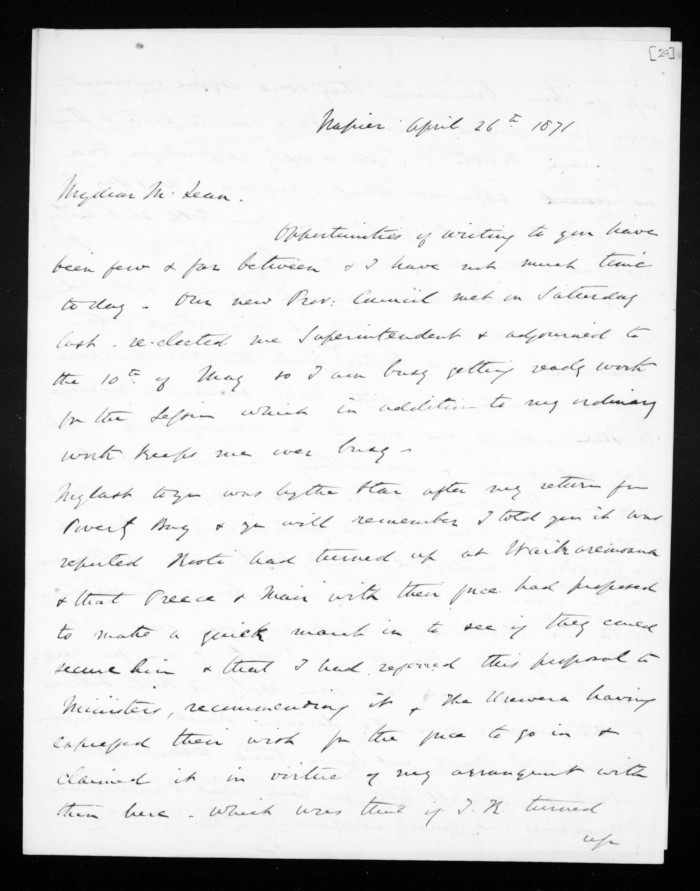 [24]
Napier April 26th 1871
My dear McLean.
Opportunities of writing to you have
been few & far between & I have not much time
to day - Our new Prov: Council met on Saturday
last - re-elected me Superintendent & adjourned to
the 10th of May so I am busy getting ready work
for the Session which in addition to my ordinary
work keeps me over busy -
My last to you was by the Star after my return from
Poverty Bay & you will remember I told you it was
reported Kooti had turned up at Waikaremoana
& that Preece & Mair with their force had proposed
to make a quick march in to see if they could
secure him & that I had referred this proposal to
Ministers, recommending it & the Urewera having
expressed their wish for the force to go in &
claimed it in virtue of my arrangement with
them here - which was that if T.K turned
up